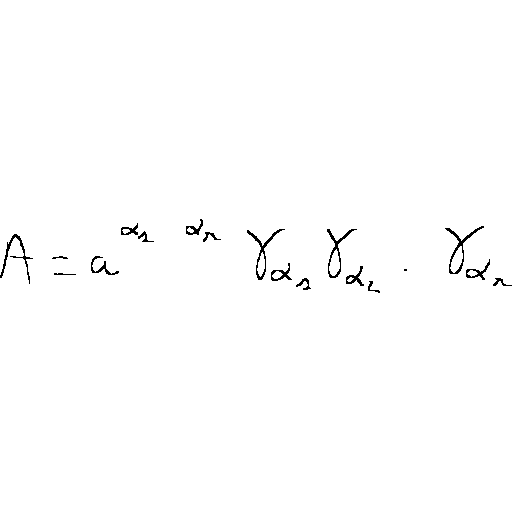 A = a^{α_1 α_r} γ_{α_1} γ_{α_2} . γ_{α_r}